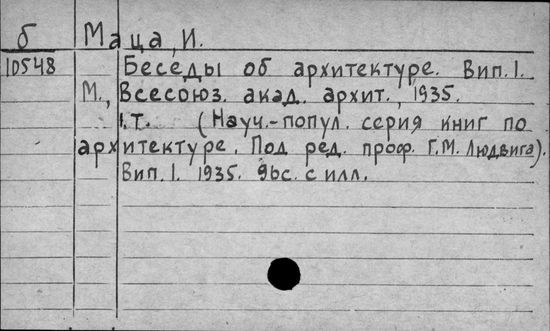 б Маца, И.
10548 Беседы об архитектуре. Вип. 1.
М., Всесоюз. акад. архит., 1935.
1.т. (Науч.-попул. серия книг по
архитектуре. Под ред. проф. Г.М. Людвига).
Вип. 1. 1935. 96с. с илл.